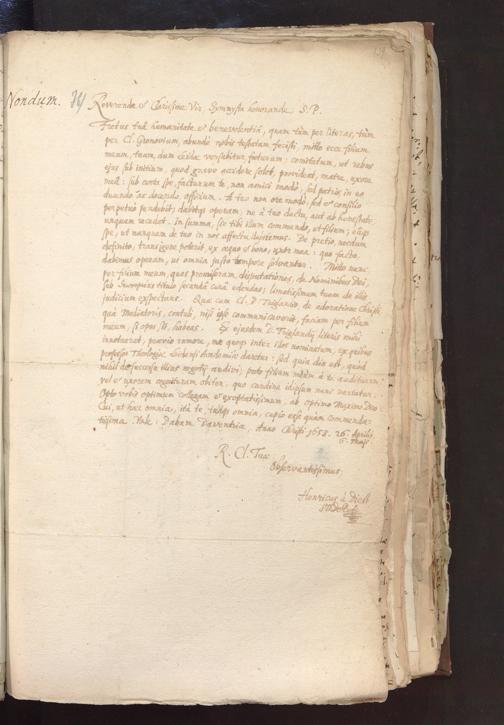 Nondum. 
Reverende et Clarissime Vir, Symmysta honorande S. P.
Fretus tuâ humanitate et benevolentiâ, quam tùm per literas, tùm
per Cl. Gronovium, abundè nobis testatam fecisti, mitto ecce filium
meum, tuam, dum istic versabitur, futurum: comitatum, ut rebus
ejus sub initium, quod grave accidere solet, provideat, matre, uxore
meâ: sub certa spe, facturum te, non amici modo, sed patris in eo
ducendo ac docendo, officium. A tuo non ore modò, sed et consilio
perpetuò pendebit; dabitque operam, ne à tuo ductu, aut ab honestate
unquam recedat. In summa, sic tibi illum commendo, ut filium; eâque
spe, ut nunquam de tuo in nos affectu dejiciamur. De pretio, necdum
definito, transigere poterit, ex aequo et bono, uxor mea: quo facto
dabimus operam, ut omnia justo tempore solvantur. Mitto nunc
per filium meum, quas promiseram, disputationes, de Nominibus Dei,
sub titulo, secundâ curâ edendas; limatissimum tuum de illis
judicium exspectans. Quae cum Cl. D. Triglandio, de adoratione Christi,
quâ Mediatoris, contuli, nisi ipse communicaverit, faciam per filium
meum, si opus sit, habeas. Ex ejusdem D. Triglandij literis mihi
innotuerat, praevio rumore, me quoque inter illos nominatum, ex quibus
professor Theologiae Leidensi Academiae daretur: sed quia diu est, quod
nihil de successu illius negotij audivi; peto filium meum à te auditurum
vel et uxorem obiter, quo cardine id nunc vertatur.
Opto vobis optimum collegam et exoptatissimum, ab optimo Maximo Deo:
Cui, ut haec omnia, ita te, tuaque omnia, cupio esse quàm commenda-
tissima. Vale. Dabam Daventria, Anno Christi 1658. 26. Aprilis
6. Maij
R. Cl. Tuae
Observantissimus
Henricus à Diest